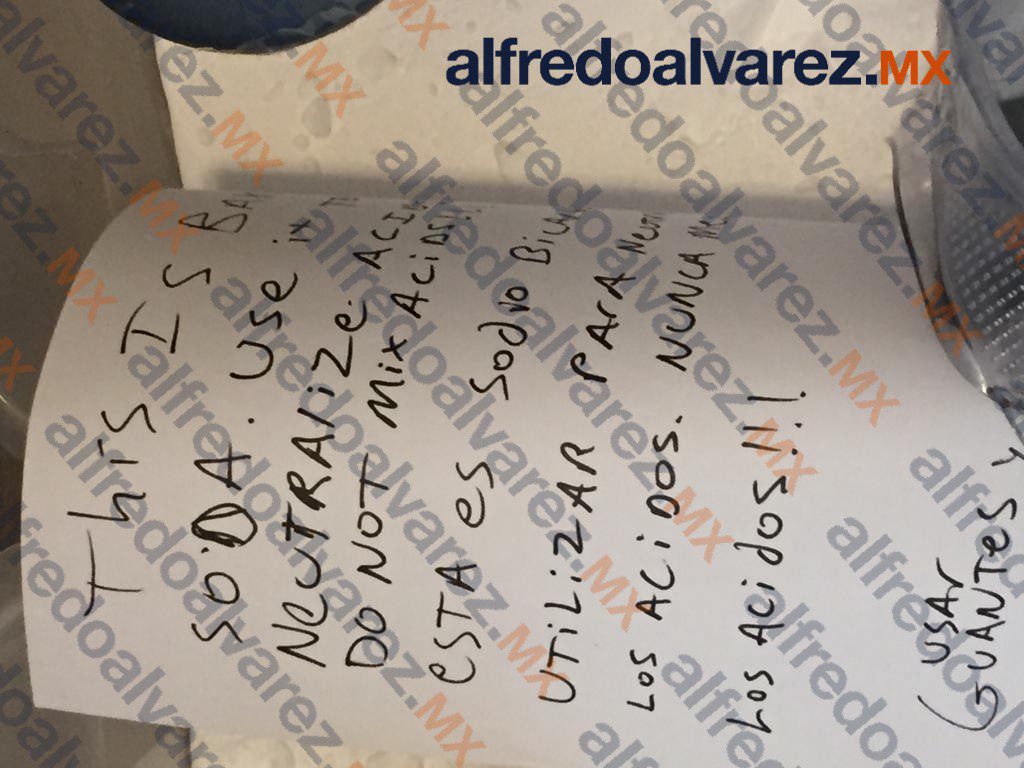 alfredoalvarez.MX
This IS
SODA. Use
NeuTRAliZe.
DO NOT Mix
ESTA es Sodio
UTiLiZAR PArA
Los Acidos. NUNCA
Los Acidos!!!
(USAr
GUANTES y